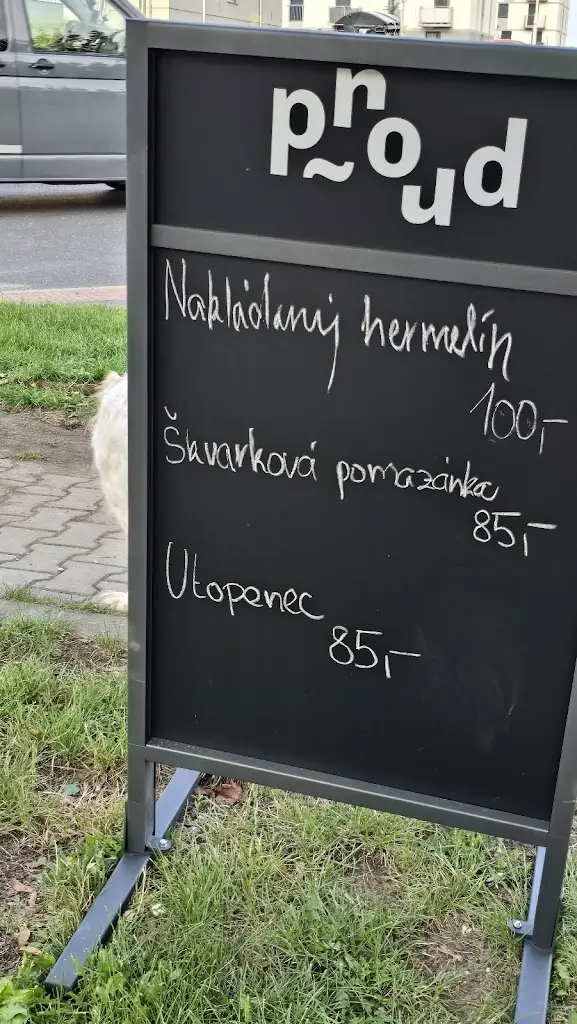 proud
Nakládaný hermelín
100,-
Škvarková pomazánka
85,-
Utopenec
85,-